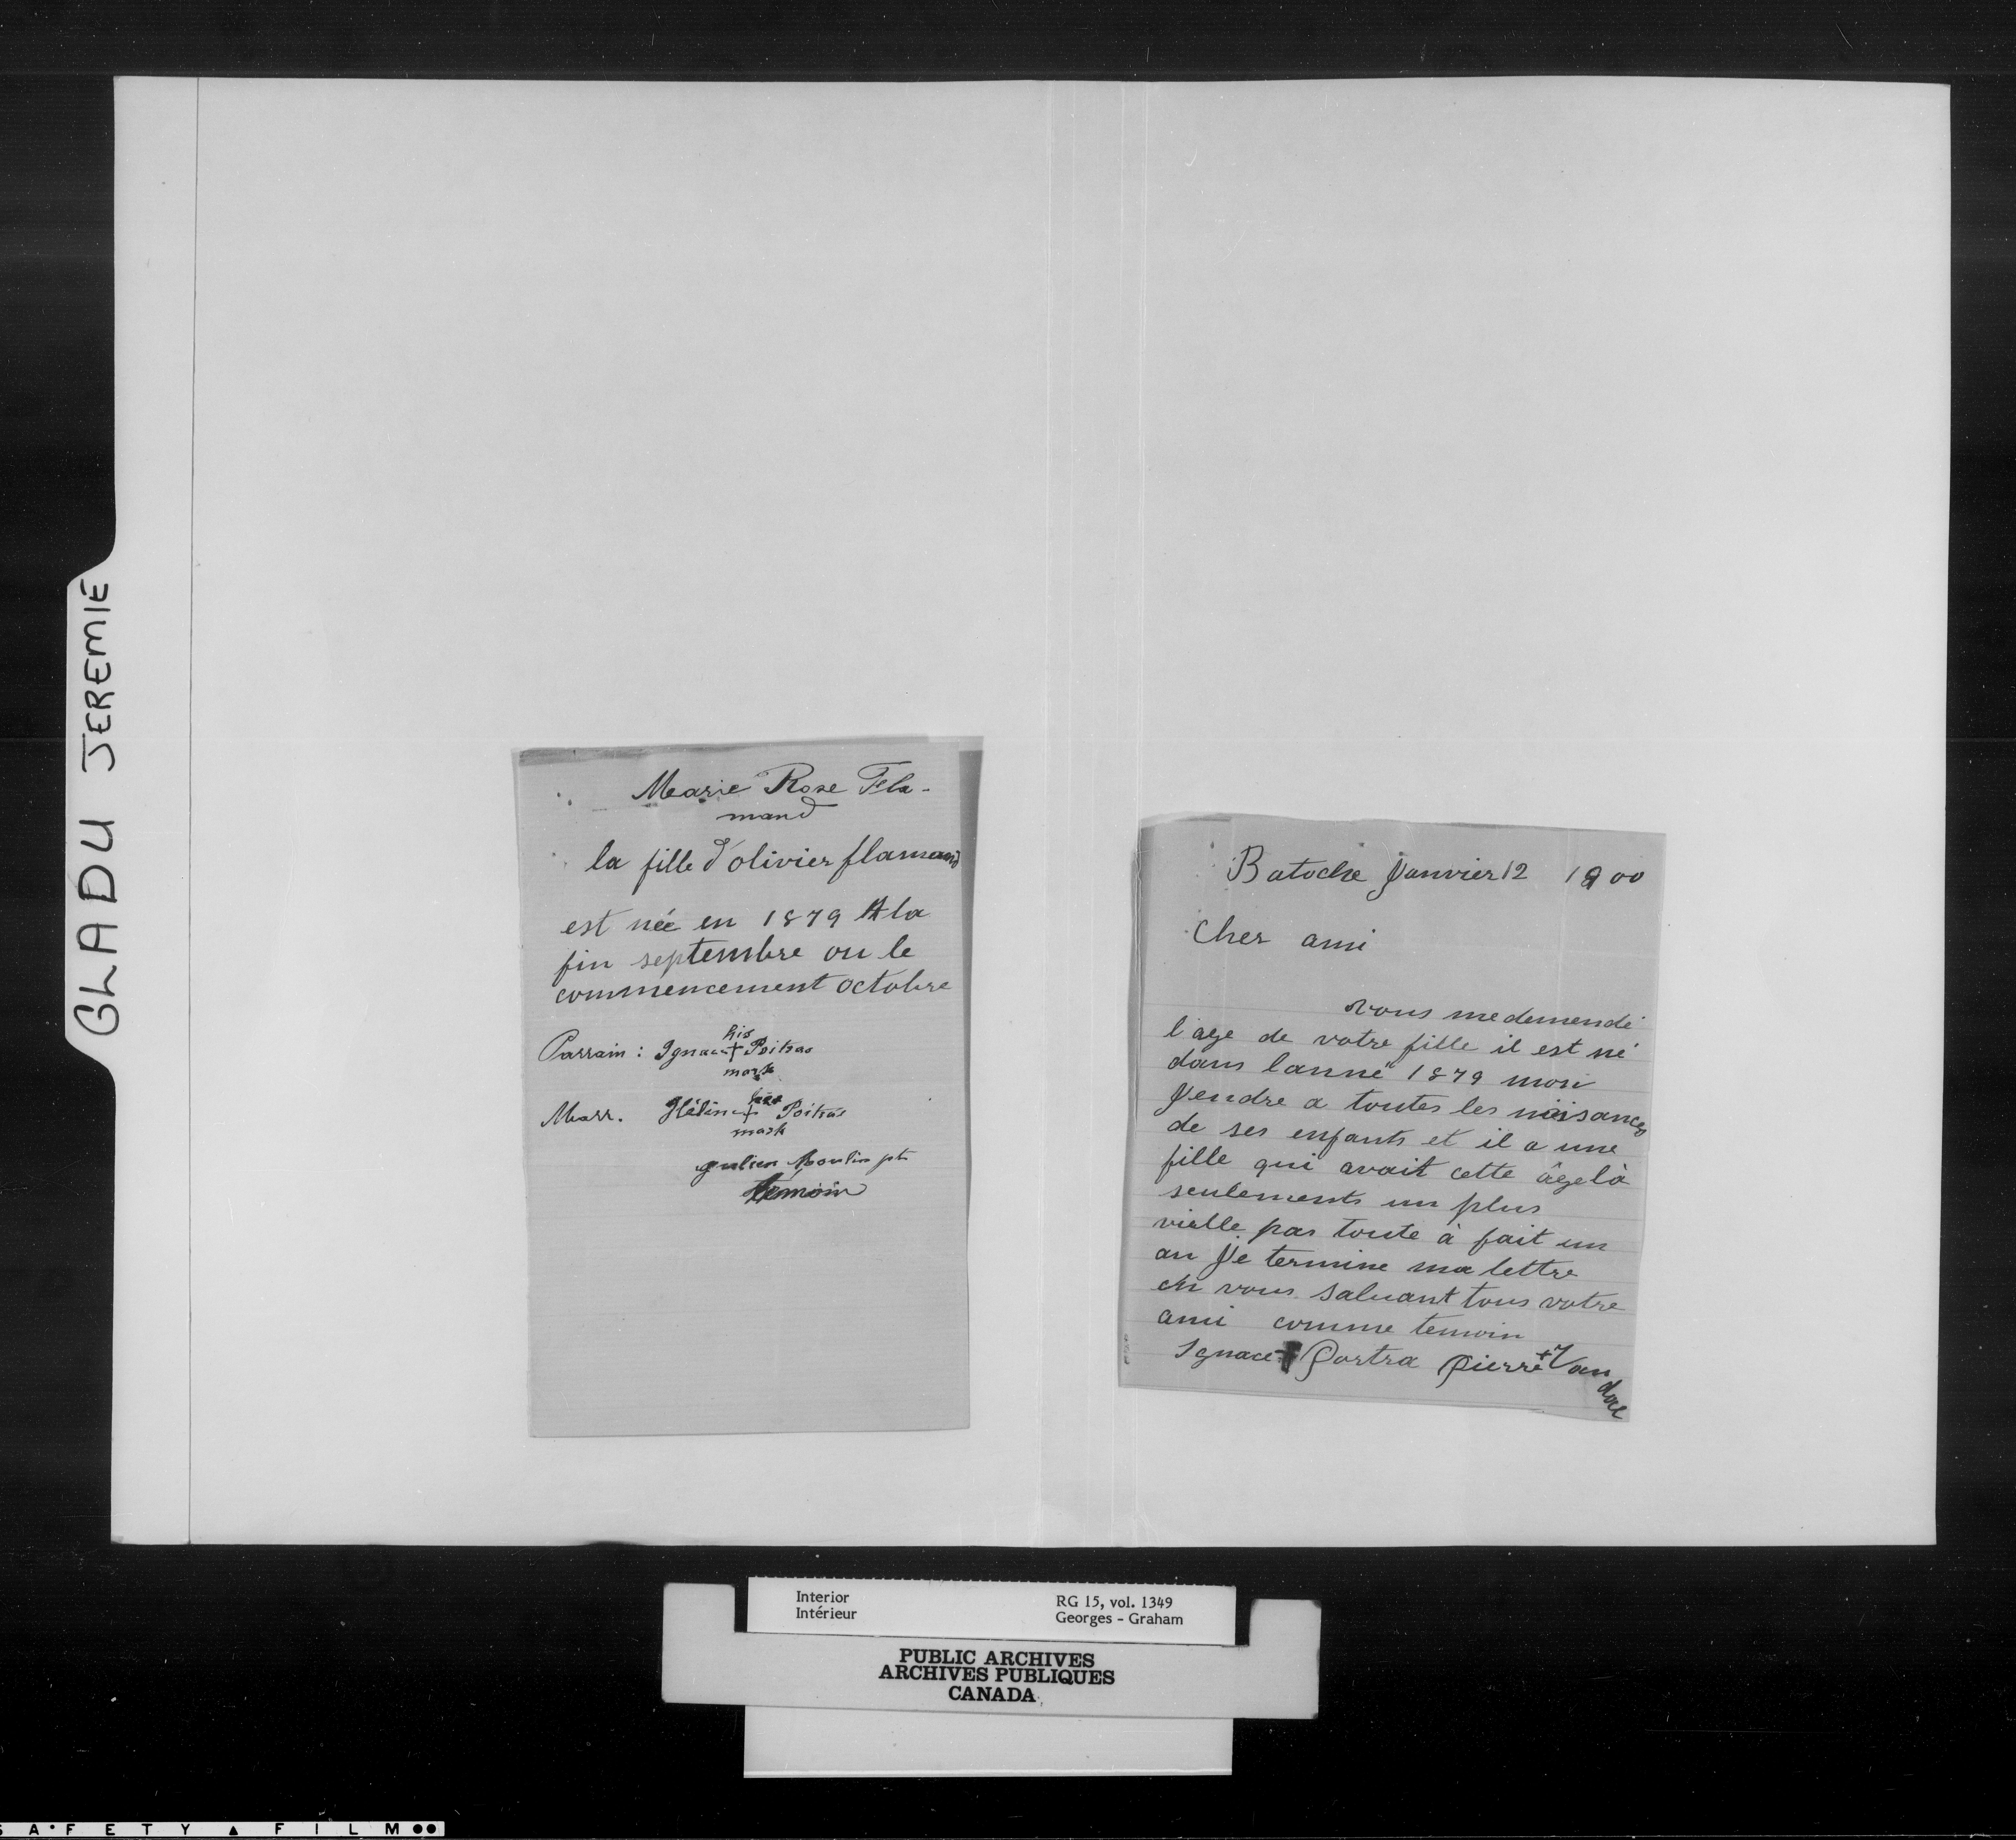 GLADU JEREMIE
Marie Rose Fla-
mand
la fille d'olivier flamand
est née en 1879 A la
fin septembre ou le
commencement octobre
his
Parrain : Ignace + Poitras
mark
his
Marr. Hélène + Poitras
mark
Julien Moulin ptr
témoin
Batoche Janvier 12 1900
Cher ami
vous me demendé
l age de votre fille il est né
dans lanné 1879 mon
Jendre a toutes les naisances
de ses enfants et il a une
fille qui avait cette âge là
seulements un plus
vielle pas toute à fait un
an Je termine ma lettre
en vous saluant tous votre
ami comme temoin
Ignace + Portra Pierre + Van
dal
Interior
Intérieur
RG 15, vol. 1349
Georges - Graham
PUBLIC ARCHIVES
ARCHIVES PUBLIQUES
CANADA
SAFETY ▲ FILM ●●